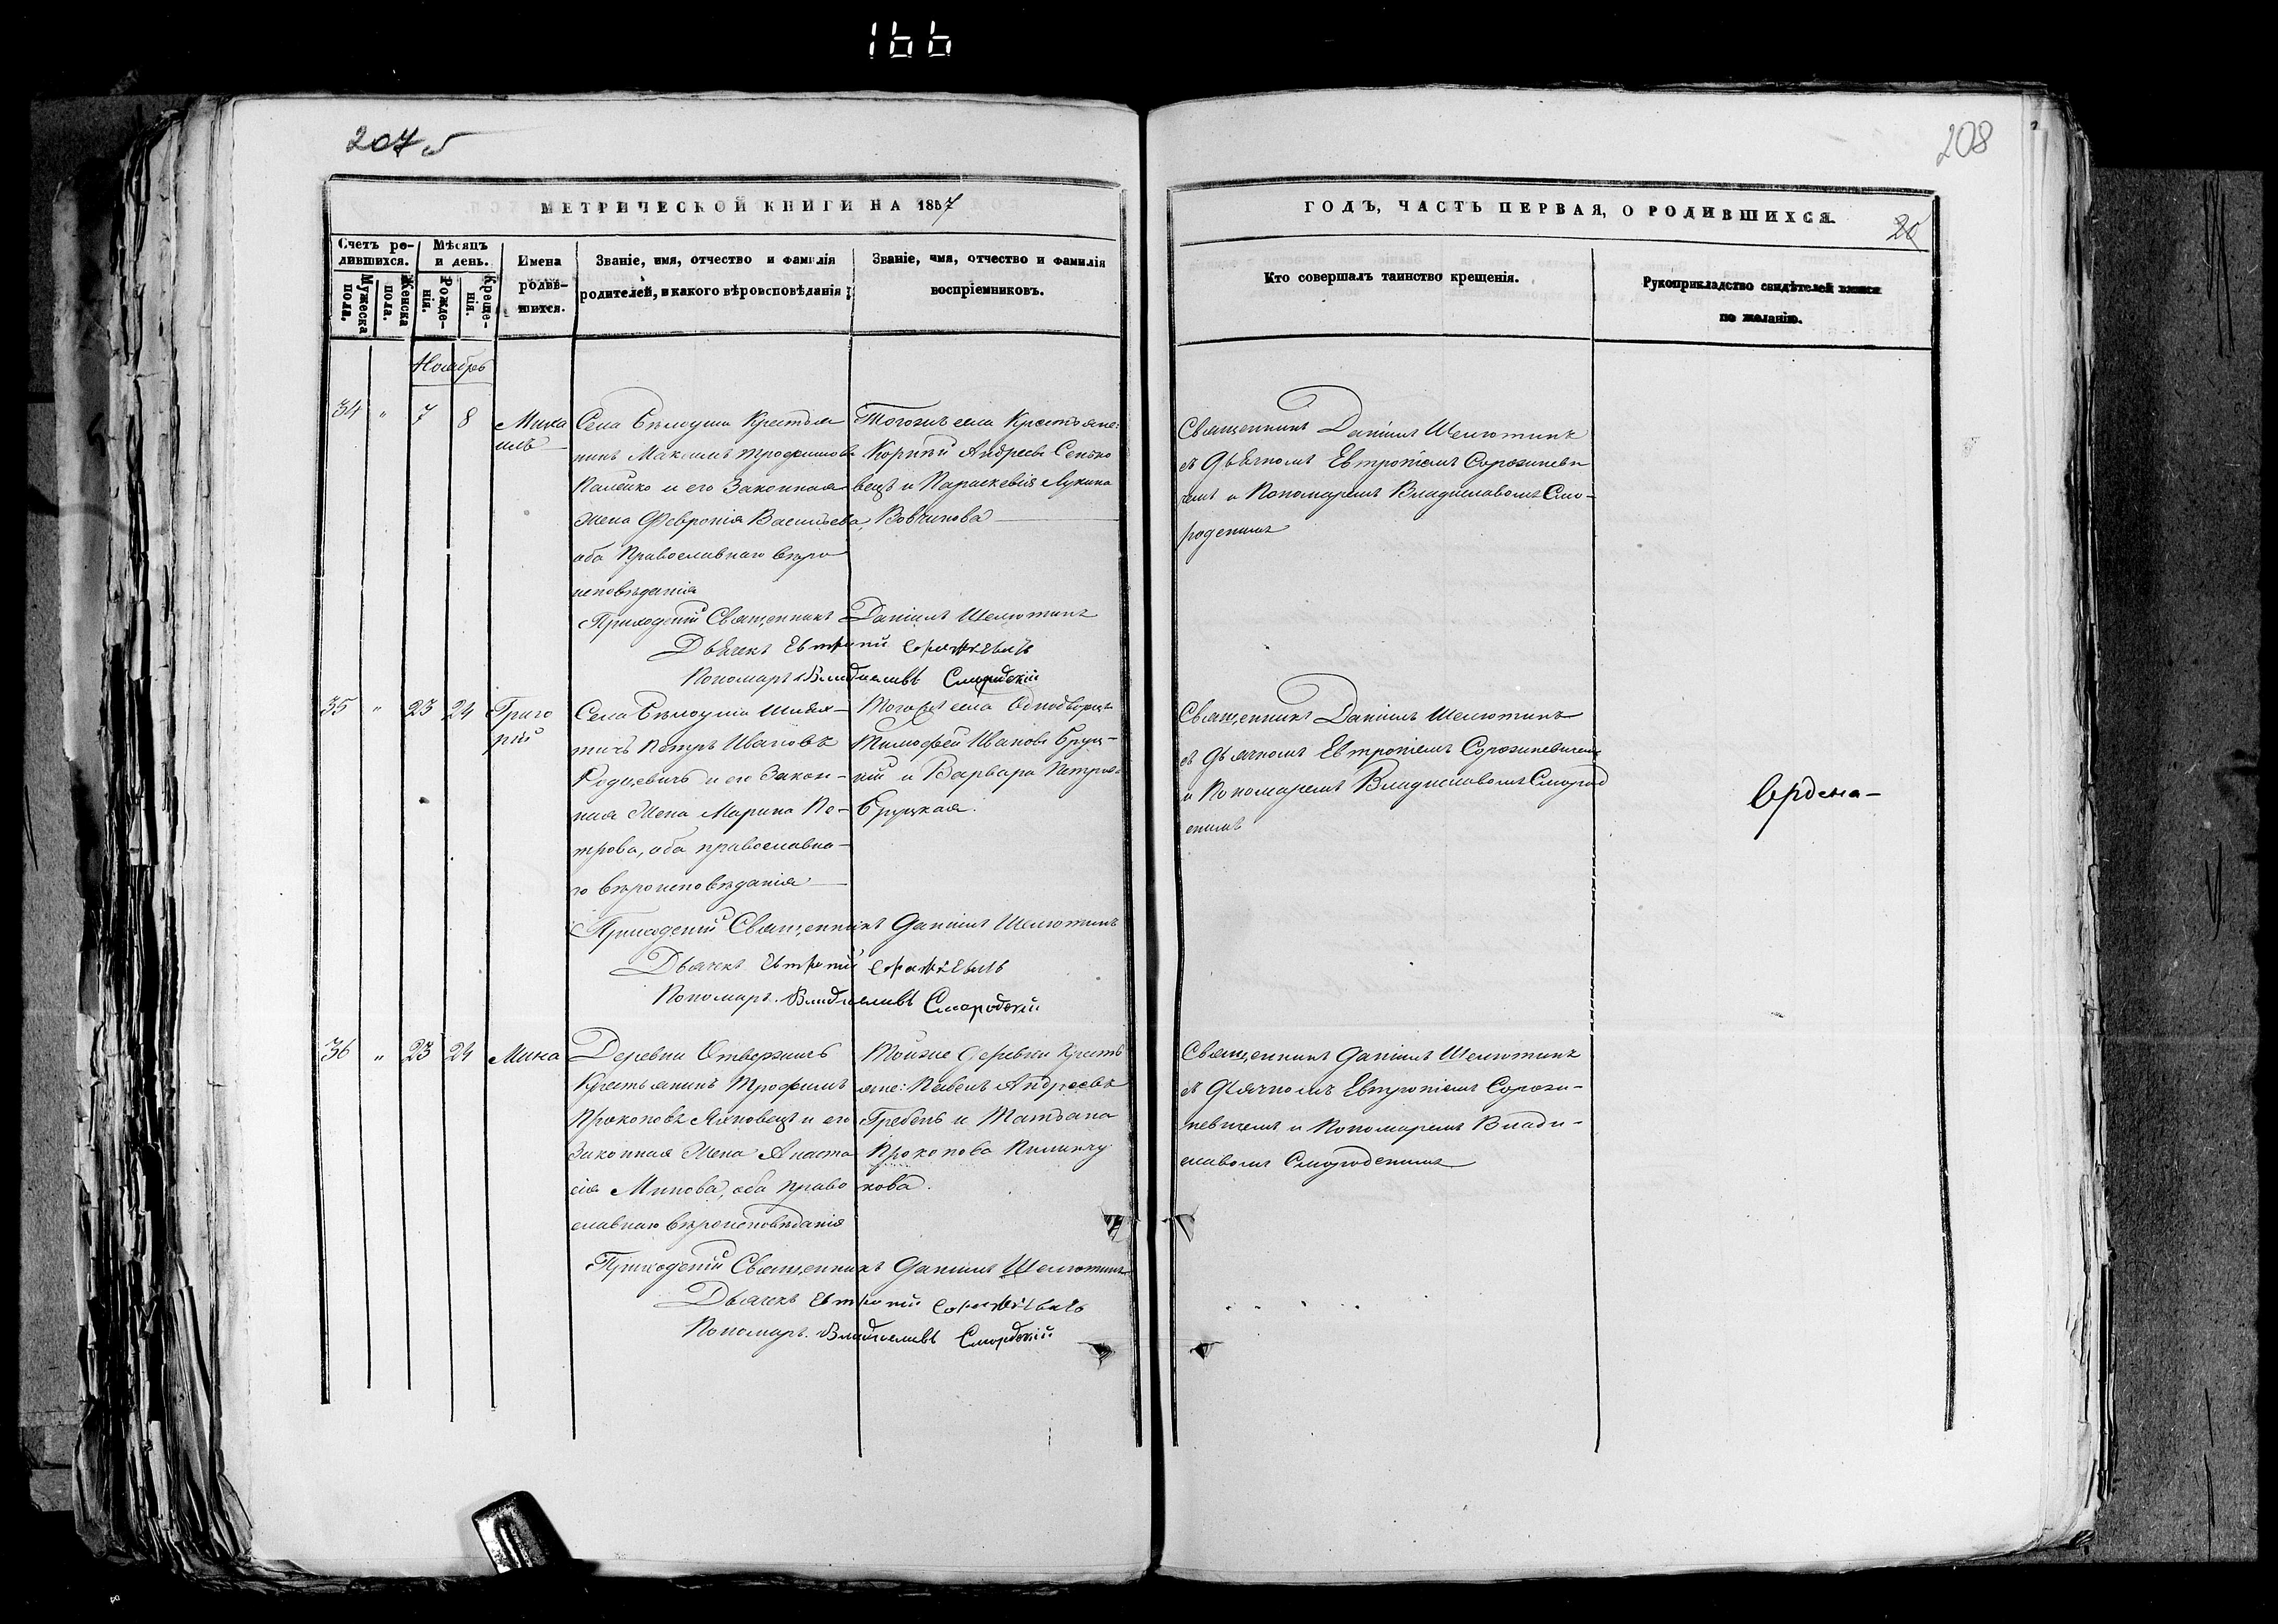 166
207
208
МЕТРИЧЕСКОЙ КНИГИ НА 1857
ГОДЪ, ЧАСТЬ ПЕРВАЯ, О РОДИВШИХСЯ.
20
Счетъ ро-
дившихся.
Мужеска
пола.
Женска
пола.
Мѣсяцъ
и день.
Рожде-
нія.
Креще-
нія.
Имена
родив-
шихся.
Званіе, имя, отчество и фамилія
родителей, и какого вѣроисповѣданія
Званіе, имя, отчество и фамилія
воспріемниковъ.
Кто совершалъ таинство крещенія.
Рукоприкладство свидѣтелей записи
по желанію.
Ноябрь
34 " 7 8
Миха
илъ
Села Бѣлоуша Крестья
нинъ Максимъ Трофимовъ
Палейко и его Законная
жена Февронія Васильева,
оба Православнаго вѣро
исповѣданія
Тогожъ села Крестьяне:
Андреевъ Сенько
вецъ и Параскевія Лукина
Вовчинова
Священникъ Даніилъ Шелютинъ
съ Дьячкомъ Евтропіемъ Сорокиневи
чемъ и Пономаремъ Владиславомъ Смо-
родскимъ
Приходскій Священникъ Даніилъ Шелютинъ
Дьячекъ Евтропій
Пономарь Владиславъ Смородскій
35 " 23 24
Григо
рій
Села Бѣлоуша Шлях-
тичъ Петръ Ивановъ
Родцевичъ и его Закон-
ная Жена Марина Пе-
трова, оба православна-
го вѣроисповѣданія
Тогожъ села Однодворцы
Тимофей Ивановъ Бруц-
кій и Варвара Петрова
Бруцкая.
Священникъ Даніилъ Шелютинъ
съ Дьячкомъ Евтропіемъ Сорокиневичемъ
и Пономаремъ Владиславомъ Смород
скимъ
Приходскій Священникъ Даніилъ Шелютинъ
Дьячекъ Евтропій
Пономарь Владиславъ Смородскій
36 " 23 24
Мина
Деревни Отвержичъ
Крестьянинъ Трофимъ
Прокоповъ Яхновецъ и его
Законная Жена Анаста
сія Минова, оба право
славнаго вѣроисповѣданія
Тойже деревни Кресть
яне: Павелъ Андреевъ
Гребень и Татьяна
Прокопова Пилипчу
кова.
Священникъ Даніилъ Шелютинъ
съ Дьячкомъ Евтропіемъ Сороки-
невичемъ и Пономаремъ Влади-
славомъ Смородскимъ
Приходскій Священникъ Даніилъ Шелютинъ
Дьячекъ Евтропій
Пономарь Владиславъ Смородскій